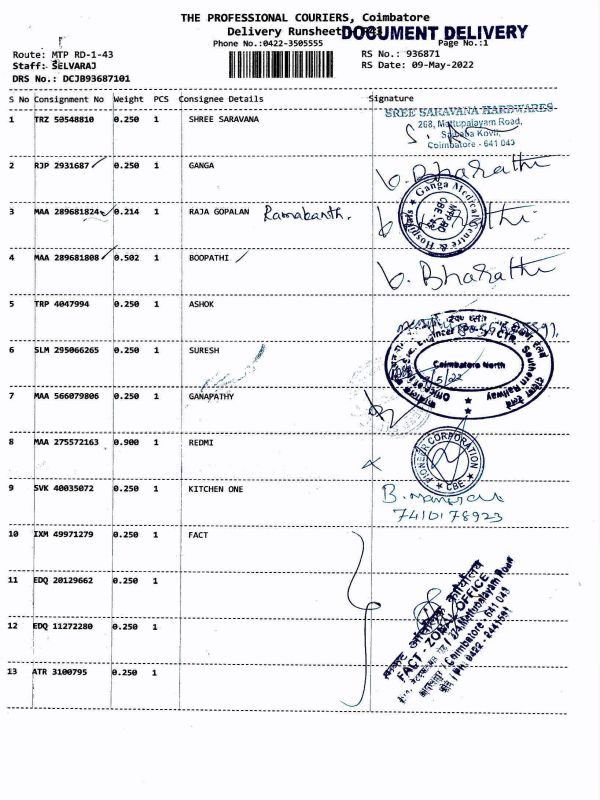 THE PROFESSIONAL COURIERS, Coimbatore
Delivery Runsheet
DOCUMENT DELIVERY
Phone No.:0422-3505555
Page No.:1
Route: MTP RD-1-43
RS No.: 936871
Staff: SELVARAJ
RS Date: 09-May-2022
DRS No.: DCJB93687101
S No Consignment No Weight PCS Consignee Details Signature
1 TRZ 50548810 0.250 1 SHREE SARAVANA
SREE SARAVANA HARDWARES
268, Mettupalayam Road,
Saibaba Kovil,
Coimbatore - 641 043
2 RJP 2931687 0.250 1 GANGA
b. Bharathi
3 MAA 289681824 0.214 1 RAJA GOPALAN Ramakanth.
Ganga Medical Centre & Hospitals
MTP RD
CBE
4 MAA 289681808 0.502 1 BOOPATHI
b. Bharathi
5 TRP 4047994 0.250 1 ASHOK
6 SLM 295066265 0.250 1 SURESH
Coimbatore North
Southern Railway
7 MAA 566079806 0.250 1 GANAPATHY
8 MAA 275572163 0.900 1 REDMI
PIONEER CORPORATION
CBE
9 SVK 40035072 0.250 1 KITCHEN ONE
7410178923
10 IXM 49971279 0.250 1 FACT
11 EDQ 20129662 0.250 1
12 EDQ 11272280 0.250 1
13 ATR 3100795 0.250 1
FACT - ZONAL OFFICE
Mettupalayam Road
Coimbatore - 641 043